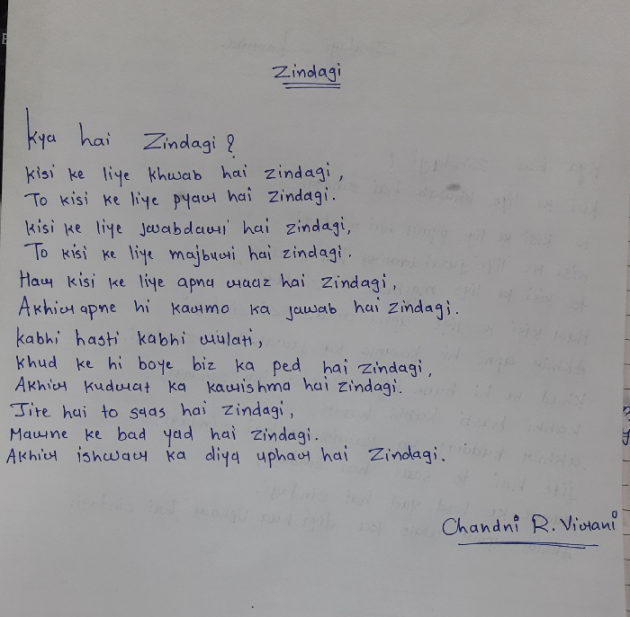 Zindagi
Kya hai Zindagi?
Kisi ke liye khwab hai zindagi,
To kisi ke liye pyar hai zindagi.
Kisi ke liye jwabdari hai zindagi,
To kisi ke liye majburi hai zindagi.
Har kisi ke liye apna raaz hai zindagi,
Akhir apne hi karmo ka jawab hai zindagi.
Kabhi hasti kabhi rulati,
Khud ke hi boye biz ka ped hai zindagi,
Akhir kudrat ka karishma hai zindagi.
Jite hai to saas hai zindagi,
Marne ke bad yad hai zindagi.
Akhir ishwar ka diya uphar hai Zindagi.
Chandni R. Virani